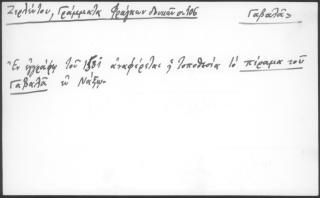 Ζερλέντου, Γράμματα Φράγκων δουκῶν σ. 106 Γαβαλᾶς
Ἐν ἐγγράφῳ τοῦ 1531 ἀναφέρεται ἡ τοποθεσία τὸ πέραμα τοῦ
Γαβαλᾶ ἐν Νάξῳ.